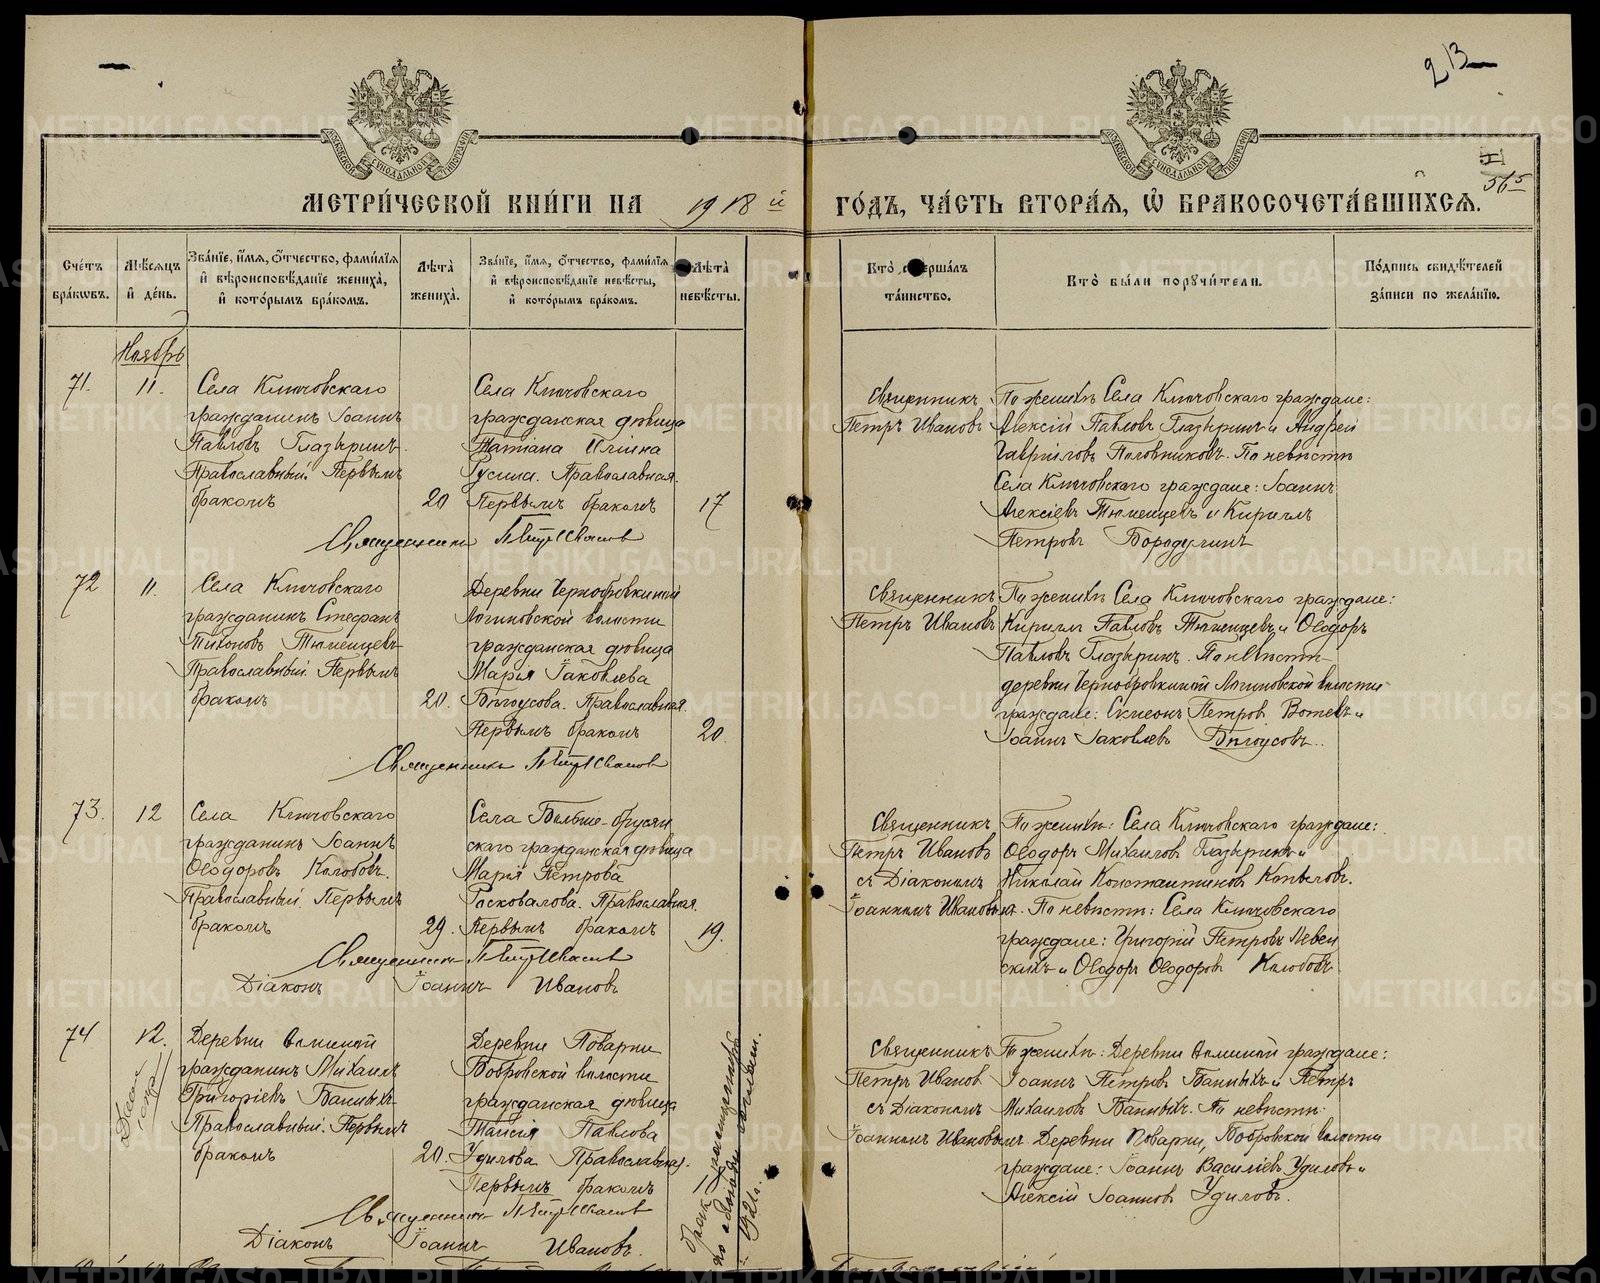 213
565
МЕТРИ́ЧЕСКОЙ КНИ́ГИ НА 1918 й ГО́ДЪ, ЧА́СТЬ ВТОРА́Я, Ѡ БРАКОСОЧЕТА́ВШИХСЯ.
Сче́тъ бра́кѡвъ.
Мѣ́сяцъ и де́нь.
Зва́нїе, и́мя, ѻ́тчество, фами́лїя и вѣроисповѣ́данїе жениха̀, и кото́рымъ бра́комъ.
Лѣта̀ жениха̀.
Зва́нїе, и́мя, ѻ́тчество, фами́лїя и вѣроисповѣ́данїе невѣ́сты, и кото́рымъ бра́комъ.
Лѣта̀ невѣ́сты.
Кто̀ соверша́лъ та́инство.
Кто̀ бы́ли порꙋчи́тели.
По́дпись свидѣ́телей за́писи по жела́нїю.
Ноябрь
71.
11.
Села Ключовскаго
гражданинъ Іоаннъ
Павловъ Глазыринъ.
Православный. Первымъ
бракомъ
20
Села Ключовскаго
гражданская дѣвица
Татіана Иліина
Гусина. Православная.
Первымъ бракомъ
17
Священникъ Петръ Ивановъ
Священникъ
Петръ Ивановъ
По женихѣ Села Ключовскаго граждане:
Алексій Павловъ Глазыринъ и Андрей
Гавріиловъ Половниковъ. По невѣстѣ
Села Ключовскаго граждане: Іоаннъ
Алексіевъ Тюменцевъ и Кириллъ
Петровъ Бородулинъ
72
11.
Села Ключовскаго
гражданинъ Стефанъ
Тихоновъ Тюменцевъ
Православный. Первымъ
бракомъ
20.
Деревни Чернобровкиной
Логиновской волости
гражданская дѣвица
Марія Іаковлева
Бѣлоусова. Православная.
Первымъ бракомъ
20.
Священникъ Петръ Ивановъ
Священникъ
Петръ Ивановъ
По женихѣ Села Ключовскаго граждане:
Кириллъ Павловъ Тюменцевъ и Ѳеодоръ
Павловъ Глазыринъ. По невѣстѣ
деревни Чернобровкиной Логиновской волости
граждане: Симеонъ Петровъ и
Іоаннъ Іаковлевъ Бѣлоусовъ.
73.
12
Села Ключовскаго
гражданинъ Іоаннъ
Ѳеодоровъ Колобовъ.
Православный. Первымъ
бракомъ
29.
Села Больше-брусян
скаго гражданская дѣвица
Марія Петрова
Расковалова. Православная.
Первымъ бракомъ
19.
Священникъ Петръ Ивановъ
Діаконъ Іоаннъ Ивановъ
Священникъ
Петръ Ивановъ
съ Діакономъ
Іоанномъ Ивановымъ.
По женихѣ: Села Ключовскаго граждане:
Ѳеодоръ Михаиловъ Глазыринъ и
Николай Константиновъ Копыловъ.
По невѣстѣ: Села Ключовскаго
граждане: Григорій Петровъ Левен
скихъ и Ѳеодоръ Ѳеодоровъ Колобовъ
74
12.
Деревни
гражданинъ Михаилъ
Григоріевъ Банныхъ
Православный. Первымъ
бракомъ
20.
Деревни Поварни
Бобровской волости
гражданская дѣвица
Таисія Павлова
Удилова Православная.
Первымъ бракомъ
Священникъ Петръ Ивановъ
Діаконъ Іоаннъ Ивановъ.
Бракъ расторгнутъ
1921 г.
Священникъ
Петръ Ивановъ
съ Діакономъ
Іоанномъ Ивановымъ
По женихѣ: Деревни граждане:
Іоаннъ Петровъ Банныхъ и Петръ
Михаиловъ Банныхъ. По невѣстѣ:
Деревни Поварни, Бобровской волости
граждане: Іоаннъ Василіевъ Удиловъ и
Алексій Іоанновъ Удиловъ.
METRIKI.GASO-URAL.RU